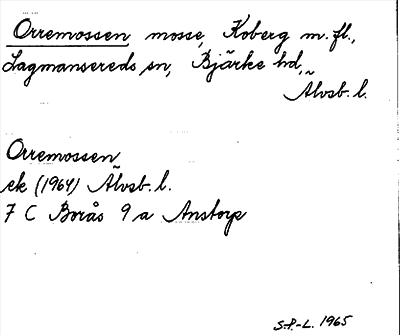 Orremossen mosse, Koberg m. fl.,
Lagmansereds sn, Bjärke hd,
Älvsb. l.
Orremossen
ek (1964) Älvsb. l.
7 C Borås 9 a Anstorp
S.P.-L. 1965